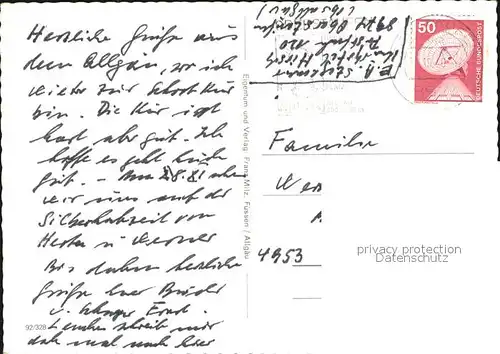 Herzliche Grüße aus
dem Allgäu, wo ich
wieder zur Schrothkur
bin. Die Kur ist
hart aber gut. Ich
hoffe es geht Euch
gut. - Am 28.81 sehen
wir uns auf der
Silberhochzeit von
Herta u. Werner
Bis dahin herzliche
Grüße Euer Bruder
u. Schwager
schreib mir
doch mal nach hier
92/328
Eigentum und Verlag: Franz Milz, Füssen / Allgäu
50
DEUTSCHE BUNDESPOST
Postfach 120
Familie
4953
privacy protection
Datenschutz